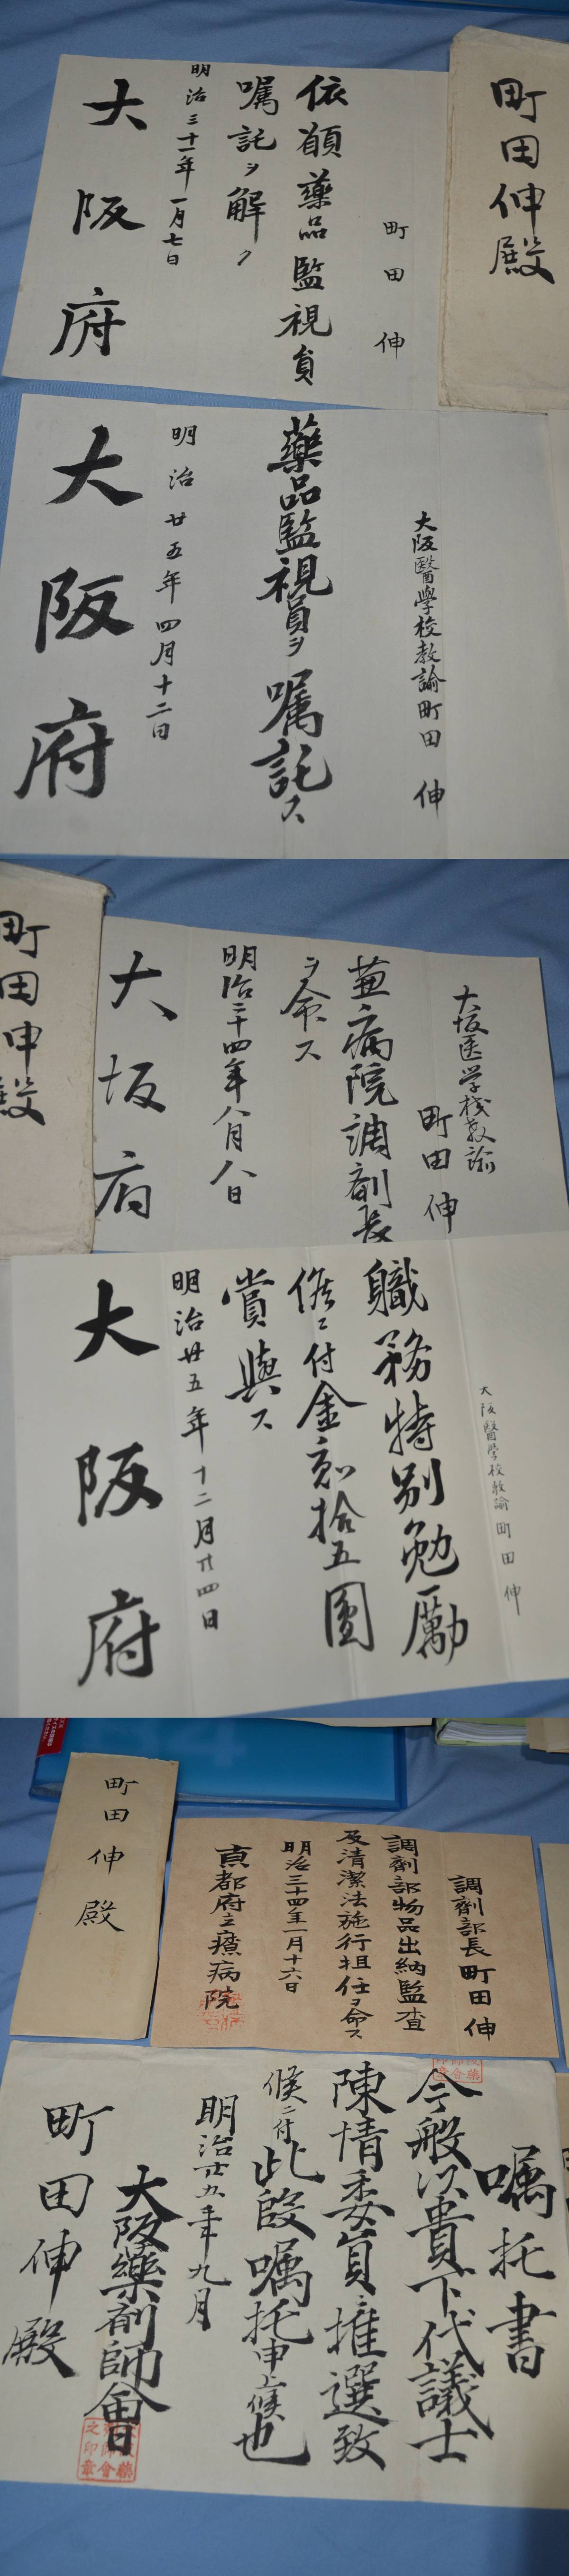 町田伸殿
町田伸
依願藥品監視員
嘱託ヲ解ク
明治三十一年一月七日
大阪府
大阪醫學校教諭町田伸
藥品監視員ヲ嘱託ス
明治廿五年四月十二日
大阪府
町田申殿
大坂医学校教諭
町田伸
兼病院調剤長
ヲ命ス
明治二十四年八月八日
大坂府
大阪醫學校教諭町田伸
職務特別勉励
候ニ付金弐拾五圓
賞與ス
明治廿五年十二月廿四日
大阪府
町田伸殿
調劑部長町田伸
調劑部物品出納監査
及清潔法施行担任ヲ命ス
明治三十四年一月十六日
京都府立療病院
嘱托書
今般以貴下代議士
陳情委員推選致
候ニ付此段嘱托申上候也
明治廿九年九月
大阪藥剤師會
町田伸殿